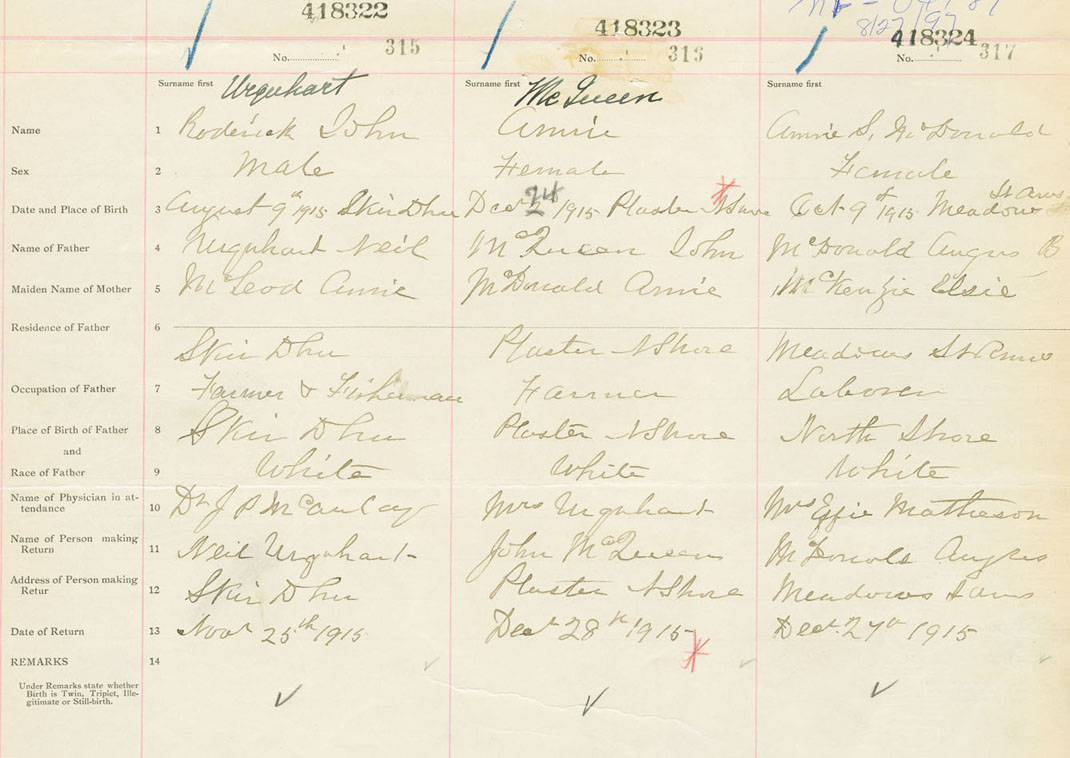 418322 418323 418324
8/27/97
No. 315 No. 316 No. 317
Surname first Urquhart Surname first McQueen Surname first
Name 1 Roderick John Annie Annie S. McDonald
Sex 2 Male Female Female
St Anns
Date and Place of Birth 3 August 9th 1915 Skir Dhu Decr 24 1915 Plaster N Shore Oct 9th 1915 Meadows
Name of Father 4 Urquhart Neil McQueen John McDonald Angus B
Maiden Name of Mother 5 McLeod Annie McDonald Annie McKenzie Elsie
Residence of Father 6
Skir Dhu Plaster N Shore Meadows St Anns
Occupation of Father 7 Farmer & Fisherman Farmer Laborer
Place of Birth of Father 8 Skir Dhu Plaster N Shore North Shore
and
Race of Father 9 White White White
Name of Physician in at-
tendance 10 Dr J P McAulay Mrs Urquhart Mrs Effie Matheson
Name of Person making
Return 11 Neil Urquhart John McQueen McDonald Angus
Address of Person making
Retur 12 Skir Dhu Plaster N Shore Meadows
Date of Return 13 Novr 25th 1915 Decr 28th 1915 Decr 27th 1915
REMARKS 14
Under Remarks state whether
Birth is Twin, Triplet, Ille-
gitimate or Still-birth.